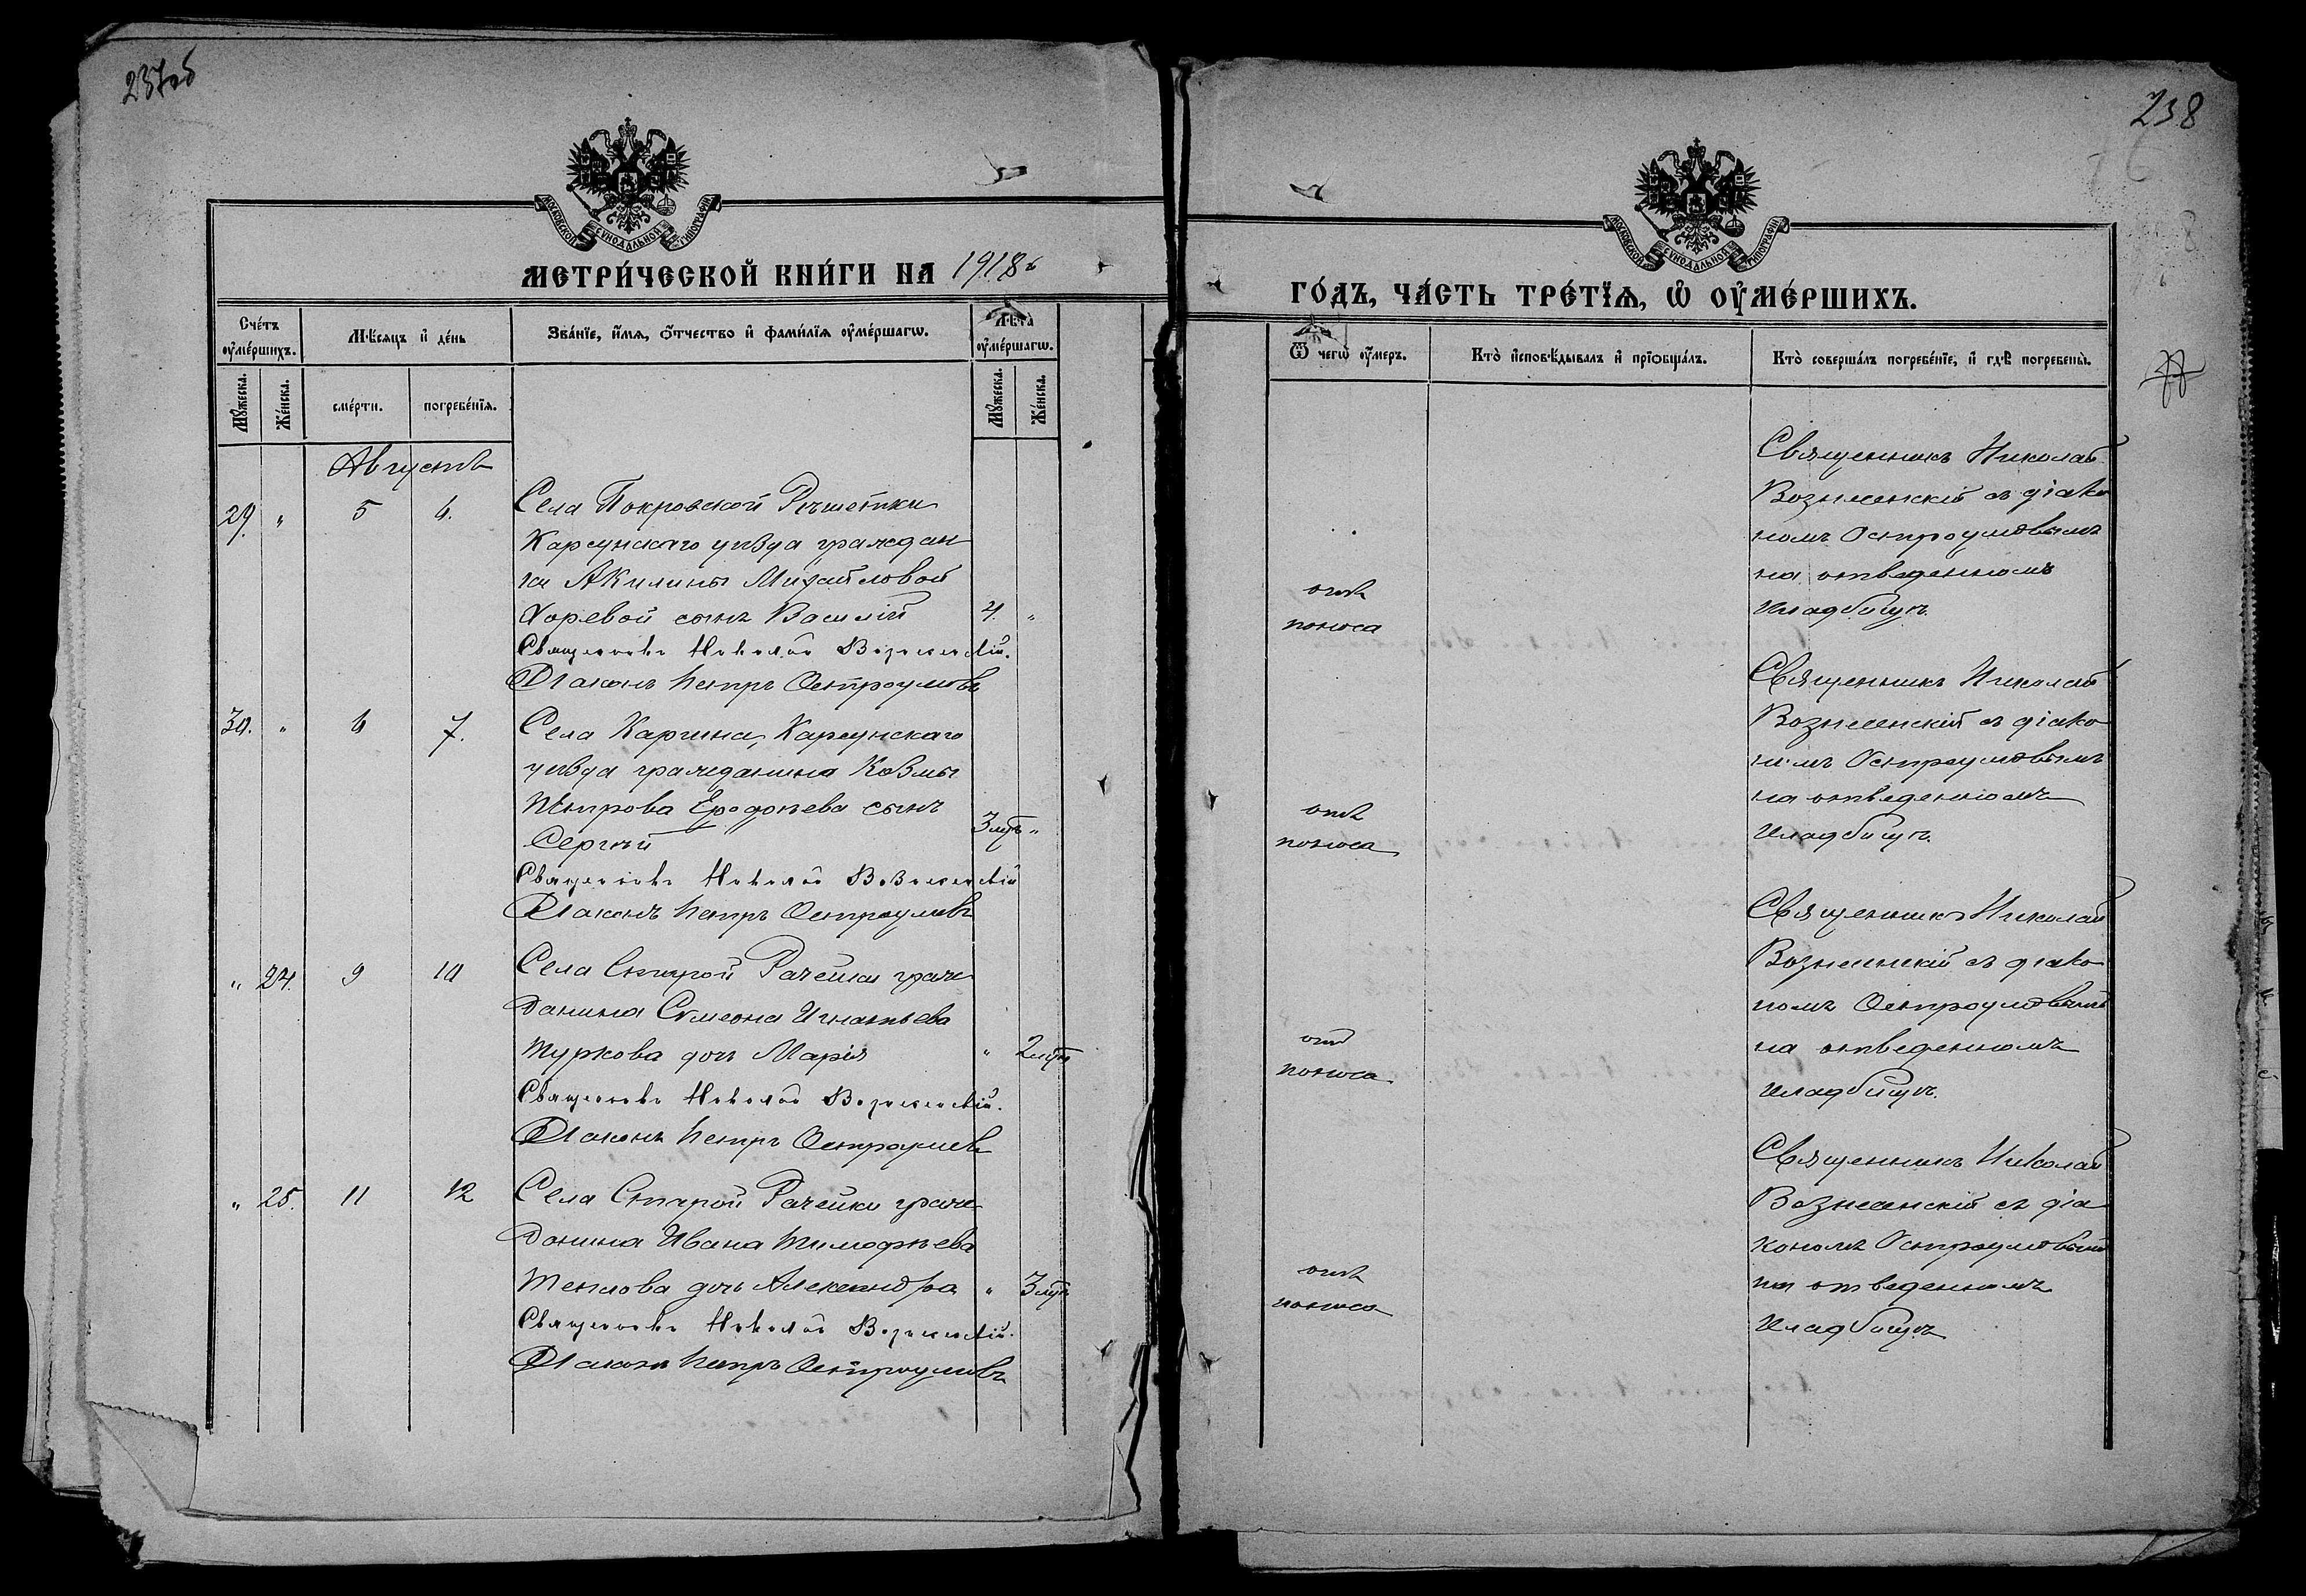 237об
МОСКОВСКОЙ СУНОДАЛЬНОЙ ТИПОГРАФІИ
МЕТРИ́ЧЕСКОЙ КНИ́ГИ НА 1918 г
Сче́тъ ᲂу҆ме́ршихъ.
Мѣ́сяцъ и҆ де́нь
Зва́нїе, и҆́мѧ, ѻ҆́тчество и҆ фами́лїѧ ᲂу҆ме́ршагѡ.
Лѣ́та ᲂу҆ме́ршагѡ.
Мꙋ́жеска.
Же́нска.
сме́рти.
погребе́нїѧ.
Мꙋ́жеска.
Же́нска.
Августъ
29. " 5 6. Села Покровской Рѣшетки
Карсунскаго уѣзда граждан
ки Акилины Михайловой
Хоревой сынъ Василій 4. "
Священникъ Николай Вознесенскій.
Діаконъ Петръ Остроумовъ
30. " 6 7. Села Каргина, Карсунскаго
уѣзда гражданина Козмы
Петрова Ерофѣева сынъ
Сергѣй 3 мѣс "
Священникъ Николай Вознесенскій
Діаконъ Петръ Остроумовъ
" 24. 9 10 Села Старой Рачейки граж
данина Сѵмеона Игнатьева
Туркова дочь Марія " 2 мѣс
Священникъ Николай Вознесенскій.
Діаконъ Петръ Остроумовъ
" 25. 11 12 Села Старой Рачейки граж
данина Ивана Тимофѣева
Теплова дочь Александра " 3 мѣс
Священникъ Николай Вознесенскій.
Діаконъ Петръ Остроумовъ
238
МОСКОВСКОЙ СУНОДАЛЬНОЙ ТИПОГРАФІИ
ГО́ДЪ, ЧА́СТЬ ТРЕ́ТЇѦ, Ѡ҆ ОУ҆МЕ́РШИХЪ.
Ѿ чегѡ̀ ᲂу҆́меръ.
Кто̀ и҆сповѣ́дывалъ и҆ прїѡбща́лъ.
Кто̀ соверша́лъ погребе́нїе, и҆ гдѣ̀ погребены̀.
Священникъ Николай
Вознесенскій съ діако
номъ Остроумовымъ
на отведенномъ
отъ
кладбищѣ.
поноса
Священникъ Николай
Вознесенскій съ діако
номъ Остроумовымъ
на отведенномъ
отъ
кладбищѣ.
поноса
Священникъ Николай
Вознесенскій съ діако
номъ Остроумовымъ
отъ
на отведенномъ
поноса
кладбищѣ.
Священникъ Николай
Вознесенскій съ діа
кономъ Остроумовымъ
отъ
на отведенномъ
поноса
кладбищѣ